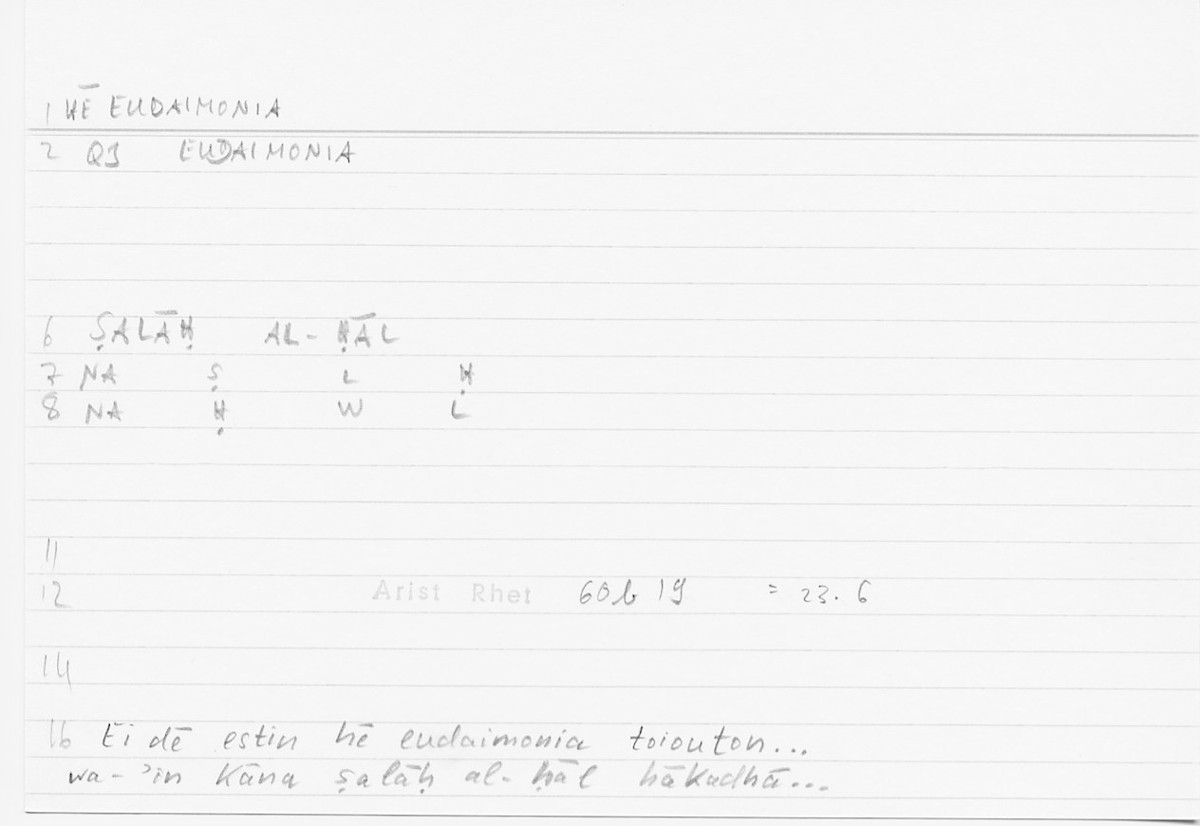 1 HĒ EUDAIMONIA
2 QJ EUDAIMONIA
6 ṢALĀḤ AL-ḤĀL
7 NA Ṣ L Ḥ
8 NA Ḥ W L
11
12 Arist Rhet 60b19 = 23.6
14
16 Ei dē estin hē eudaimonia toiouton...
wa-ʾin kāna ṣalāḥ al-ḥāl hākadhā...